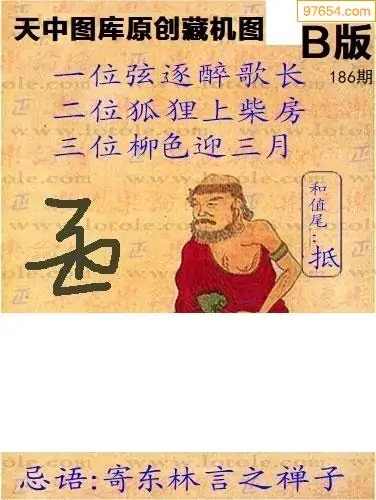 97654.com
天中图库原创藏机图
B版
186期
一位弦逐醉歌长
二位狐狸上柴房
三位柳色迎三月
和值尾:抵
忌语:寄东林言之禅子